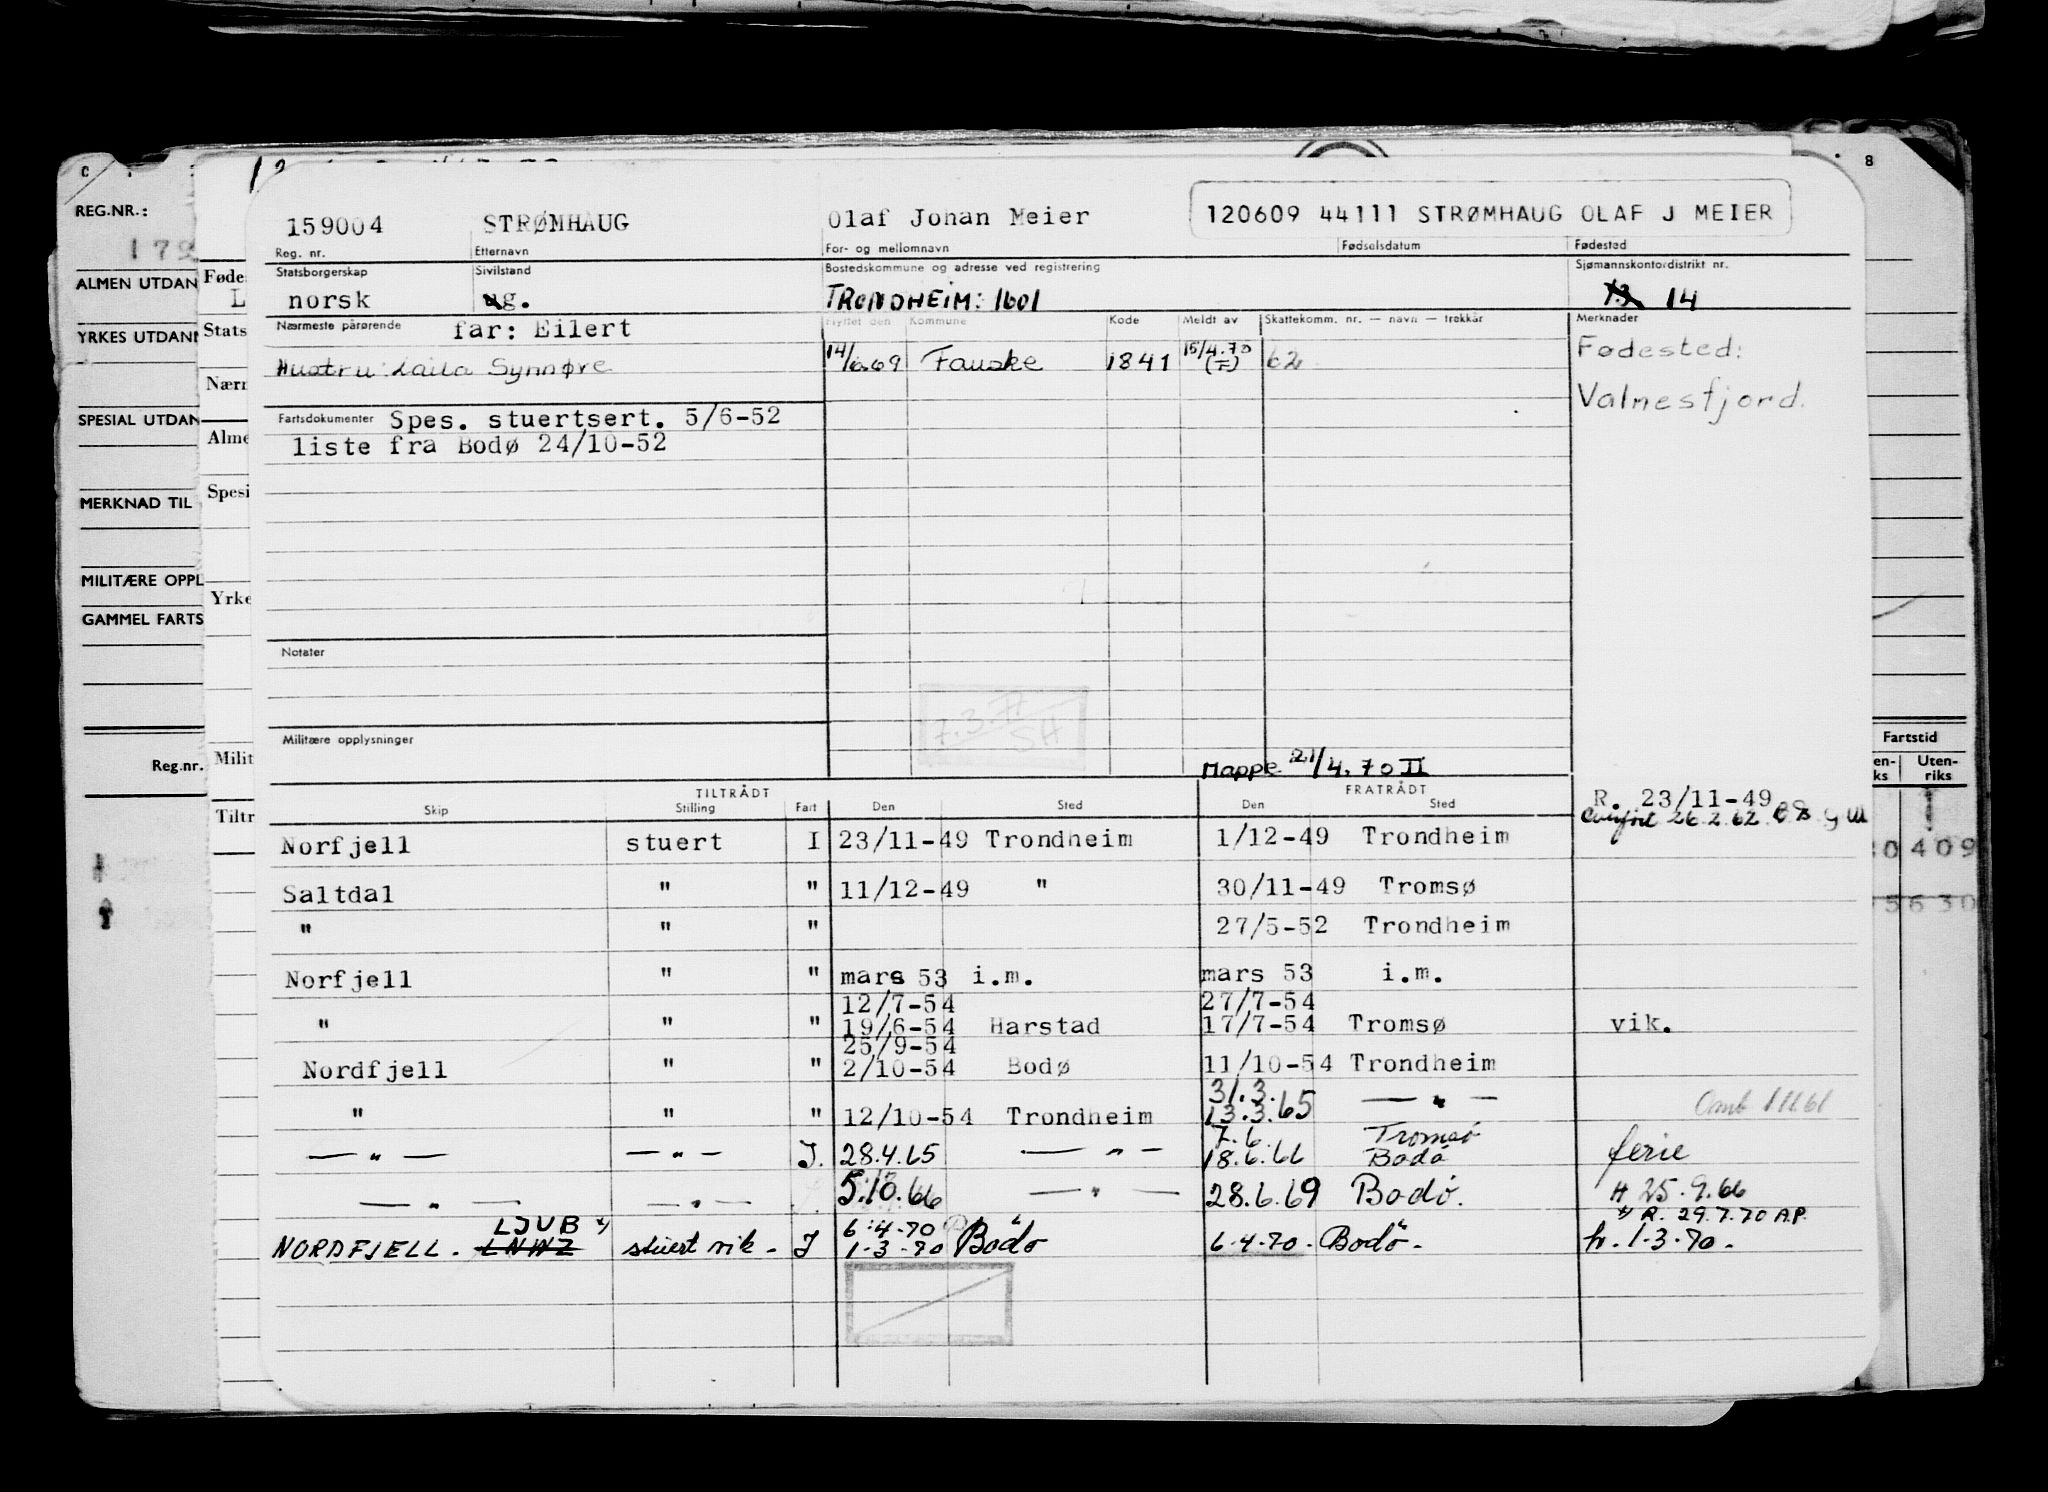 REG.NR.:
ALMEN UTDAN
YRKES UTDANN
SPESIAL UTDAN
MERKNAD TIL
MILITÆRE OPPL
GAMMEL FARTS
Reg.nr.
Føde
L
Stats
Nærn
Alme
Spesi
Yrke
Milit
Tiltr
159004 STRØMHAUG Olaf Johan Meier 120609 44111 STRØMHAUG OLAF J MEIER
Reg. nr. Etternavn For- og mellomnavn Fødselsdatum Fødested
Statsborgerskap Sivilstand Bostedskommune og adresse ved registrering Sjømannskontordistrikt nr.
norsk ug. TRONDHEIM: 1601 14
Nærmeste pårørende far: Eilert Flyttet den Kommune Kode Meldt av Skattekomm. nr. — navn — trekkår Merknader
Hustru: Laila Synnøre 14/6.69 Fauske 1841 15/4.70 (F) 62 Fødested:
Valnesfjord.
Fartsdokumenter Spes. stuertsert. 5/6-52
liste fra Bodø 24/10-52
Notater
7.3.71
SH
Militære opplysninger
Mappe 21/4.70 II
TILTRÅDT FRATRÅDT
Skip Stilling Fart Den Sted Den Sted
R. 23/11-49
26.2.62
Norfjell stuert I 23/11-49 Trondheim 1/12-49 Trondheim
Saltdal " " 11/12-49 " 30/11-49 Tromsø
" " " 27/5-52 Trondheim
Norfjell " " mars 53 i.m. mars 53 i.m.
12/7-54 27/7-54
" " " 19/6-54 Harstad 17/7-54 Tromsø vik.
25/9-54
Nordfjell " " 2/10-54 Bodø 11/10-54 Trondheim
31.3.
" " " 12/10-54 Trondheim 13.3.65 — " —
7.6. Tromsø
— " — — " — I. 28.4.65 — " — 18.6.66 Bodø ferie
— " — — " — 5.10.66 — " — 28.6.69 Bodø. H 25.9.66
LJUB x) 6.4.70 x) R. 29.7.70 A.P.
NORDFJELL. LNWZ stuert vik - I 1-3-70 Bodø 6-4-70 - Bodø - fr. 1-3-70.
8
Fartstid
en-
ks
Uten-
riks
0409
5630